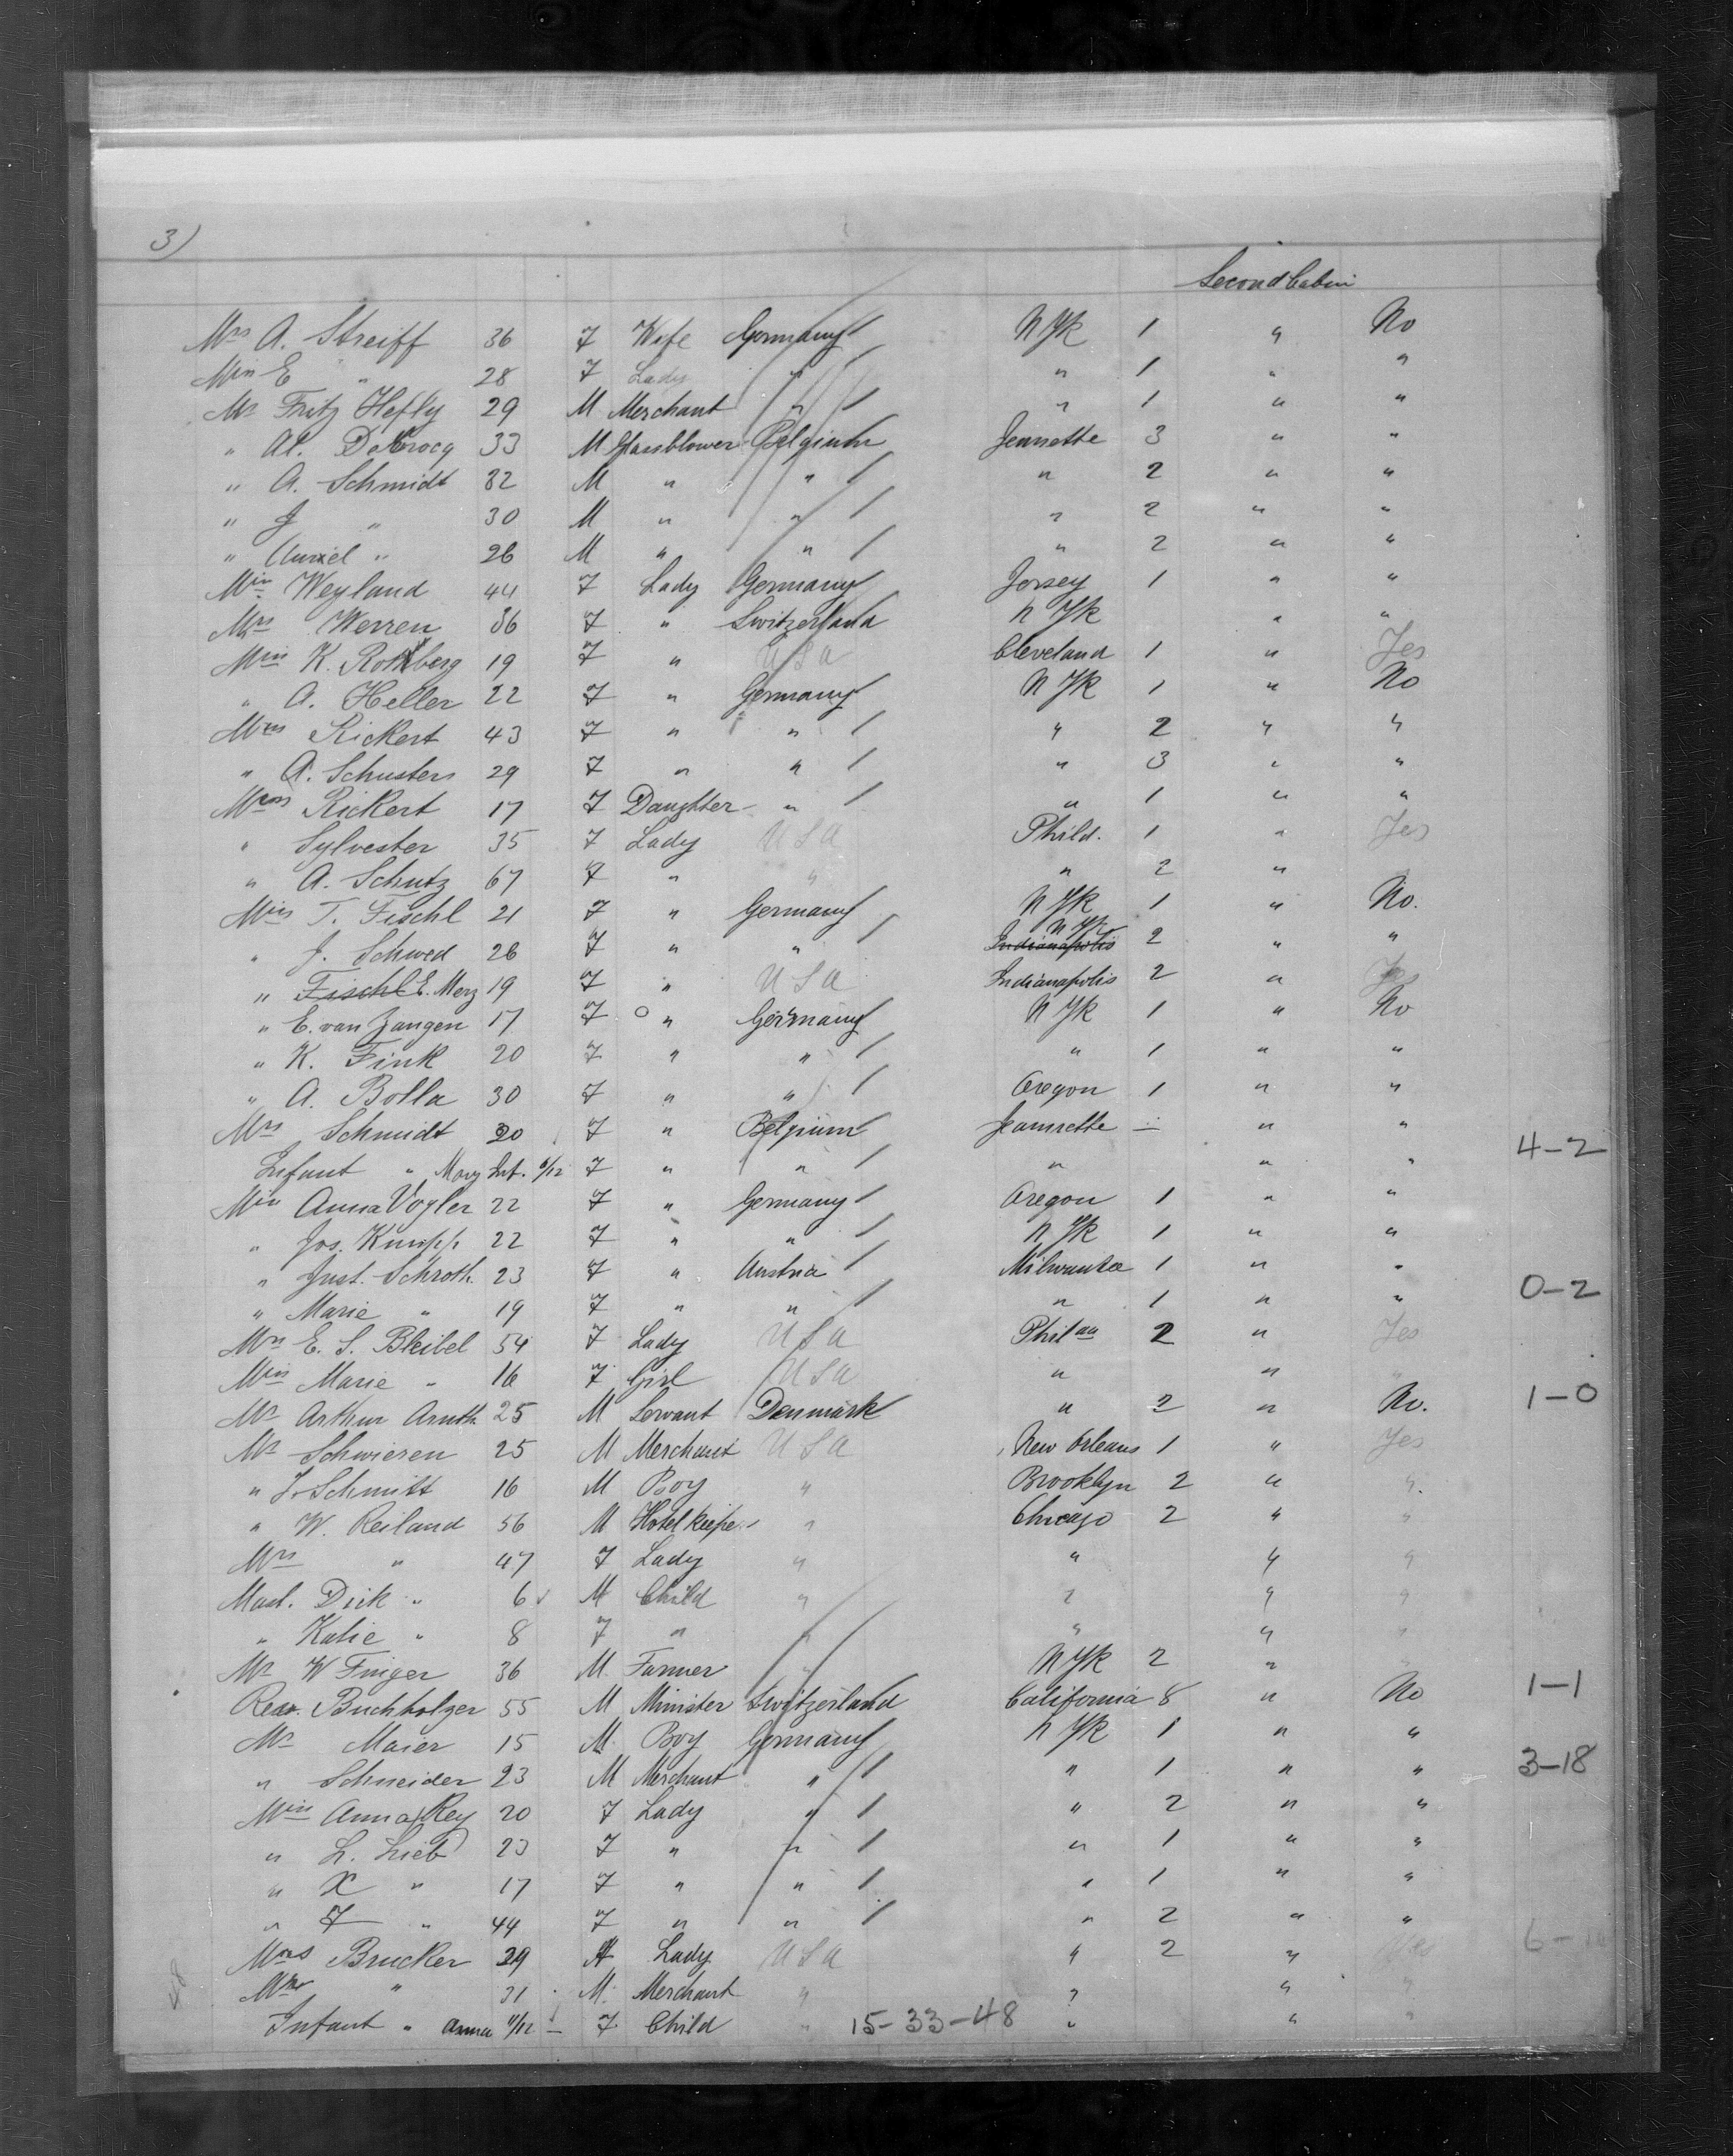 3)
Second Cabin
Mrs A. Streiff 36 F Wife Germany / N Yk 1 " No
Miss E " 28 F Lady " / " 1 " "
Mr Fritz Hefly 29 M Merchant " / " 1 " "
" Al. 33 M Glassblower Belgium Jeannette 3 " "
" A. Schmidt 32 M " " / " 2 " "
" J " 30 M " " / " 2 " "
" " 26 M " " / " 2 " "
Miss Weyland 44 F Lady Germany Jersey 1 " "
Mrs Werren 36 F " Switzerland N Yk " "
Miss K. Rothberg 19 F " USA Cleveland 1 " Yes
" A. Heller 22 F " Germany N Yk 1 " No
Mrs Rickert 43 F " " / " 2 " "
" A. Schusters 29 F " " / " 3 " "
Rickert 17 F Daughter " / " 1 " "
" Sylvester 35 F Lady USA Phild. 1 " Yes
" A. Schutz 67 F " " " 2 " "
Miss T. Fischl 21 F " Germany N Yk 1 " No.
" J. Schwed 26 F " " / Indianapolis N Yk 2 " "
" Fischl E. Merz 19 F " USA Indianapolis 2 " Yes
" E. van Zangen 17 F " Germany N Yk 1 " No
" K. Fink 20 F " " / " 1 " "
" A. Bolla 30 F " " / Oregon 1 " "
Mrs Schmidt 20 F " Belgium Jeannette " "
Infant " Mary Inf. /12 F " " / " " " 4-2
Miss Anna Vogler 22 F " Germany / Oregon 1 " "
" Jos. Knupp 22 F " " / N Yk 1 " "
" Just. Schroth 23 F " Austria / Milwaukee 1 " "
" Marie " 19 F " " / " 1 " " 0-2
Mrs E. S. Bleibel 54 F Lady USA Phil 2 " Yes
Miss Marie " 16 F Girl USA " " "
Mr Arthur Arnth 25 M Servant Denmark " 2 " No. 1-0
Mr Schwieren 25 M Merchant USA New Orleans 1 " Yes
" J. Schmitt 16 M Boy " Brooklyn 2 " "
" W. Reiland 56 M Hotelkeeper " Chicago 2 " "
Mrs " 47 F Lady " " " "
Mast. Dick " 6 M Child " " " "
" Katie " 8 F " " " " "
Mr W Finger 36 M. Farmer " N Yk 2 " "
Rev. Buchholzer 55 M Minister Switzerland California 8 " No 1-1
Mr Maier 15 M. Boy Germany N Yk 1 " "
" Schneider 23 M Merchant " / " 1 " " 3-18
Miss Anna Rey 20 F Lady " / " 2 " "
" L. Lieb 23 F " " / " 1 " "
" X " 17 F " " / " 1 " "
" F " 44 F " " / " 2 " "
Mrs Brucker 29 Lady USA " 2 " Yes 6-
" 31 M. Merchant " " " "
Infant " Anna 11/12 - F Child " 15-33-48 " " "